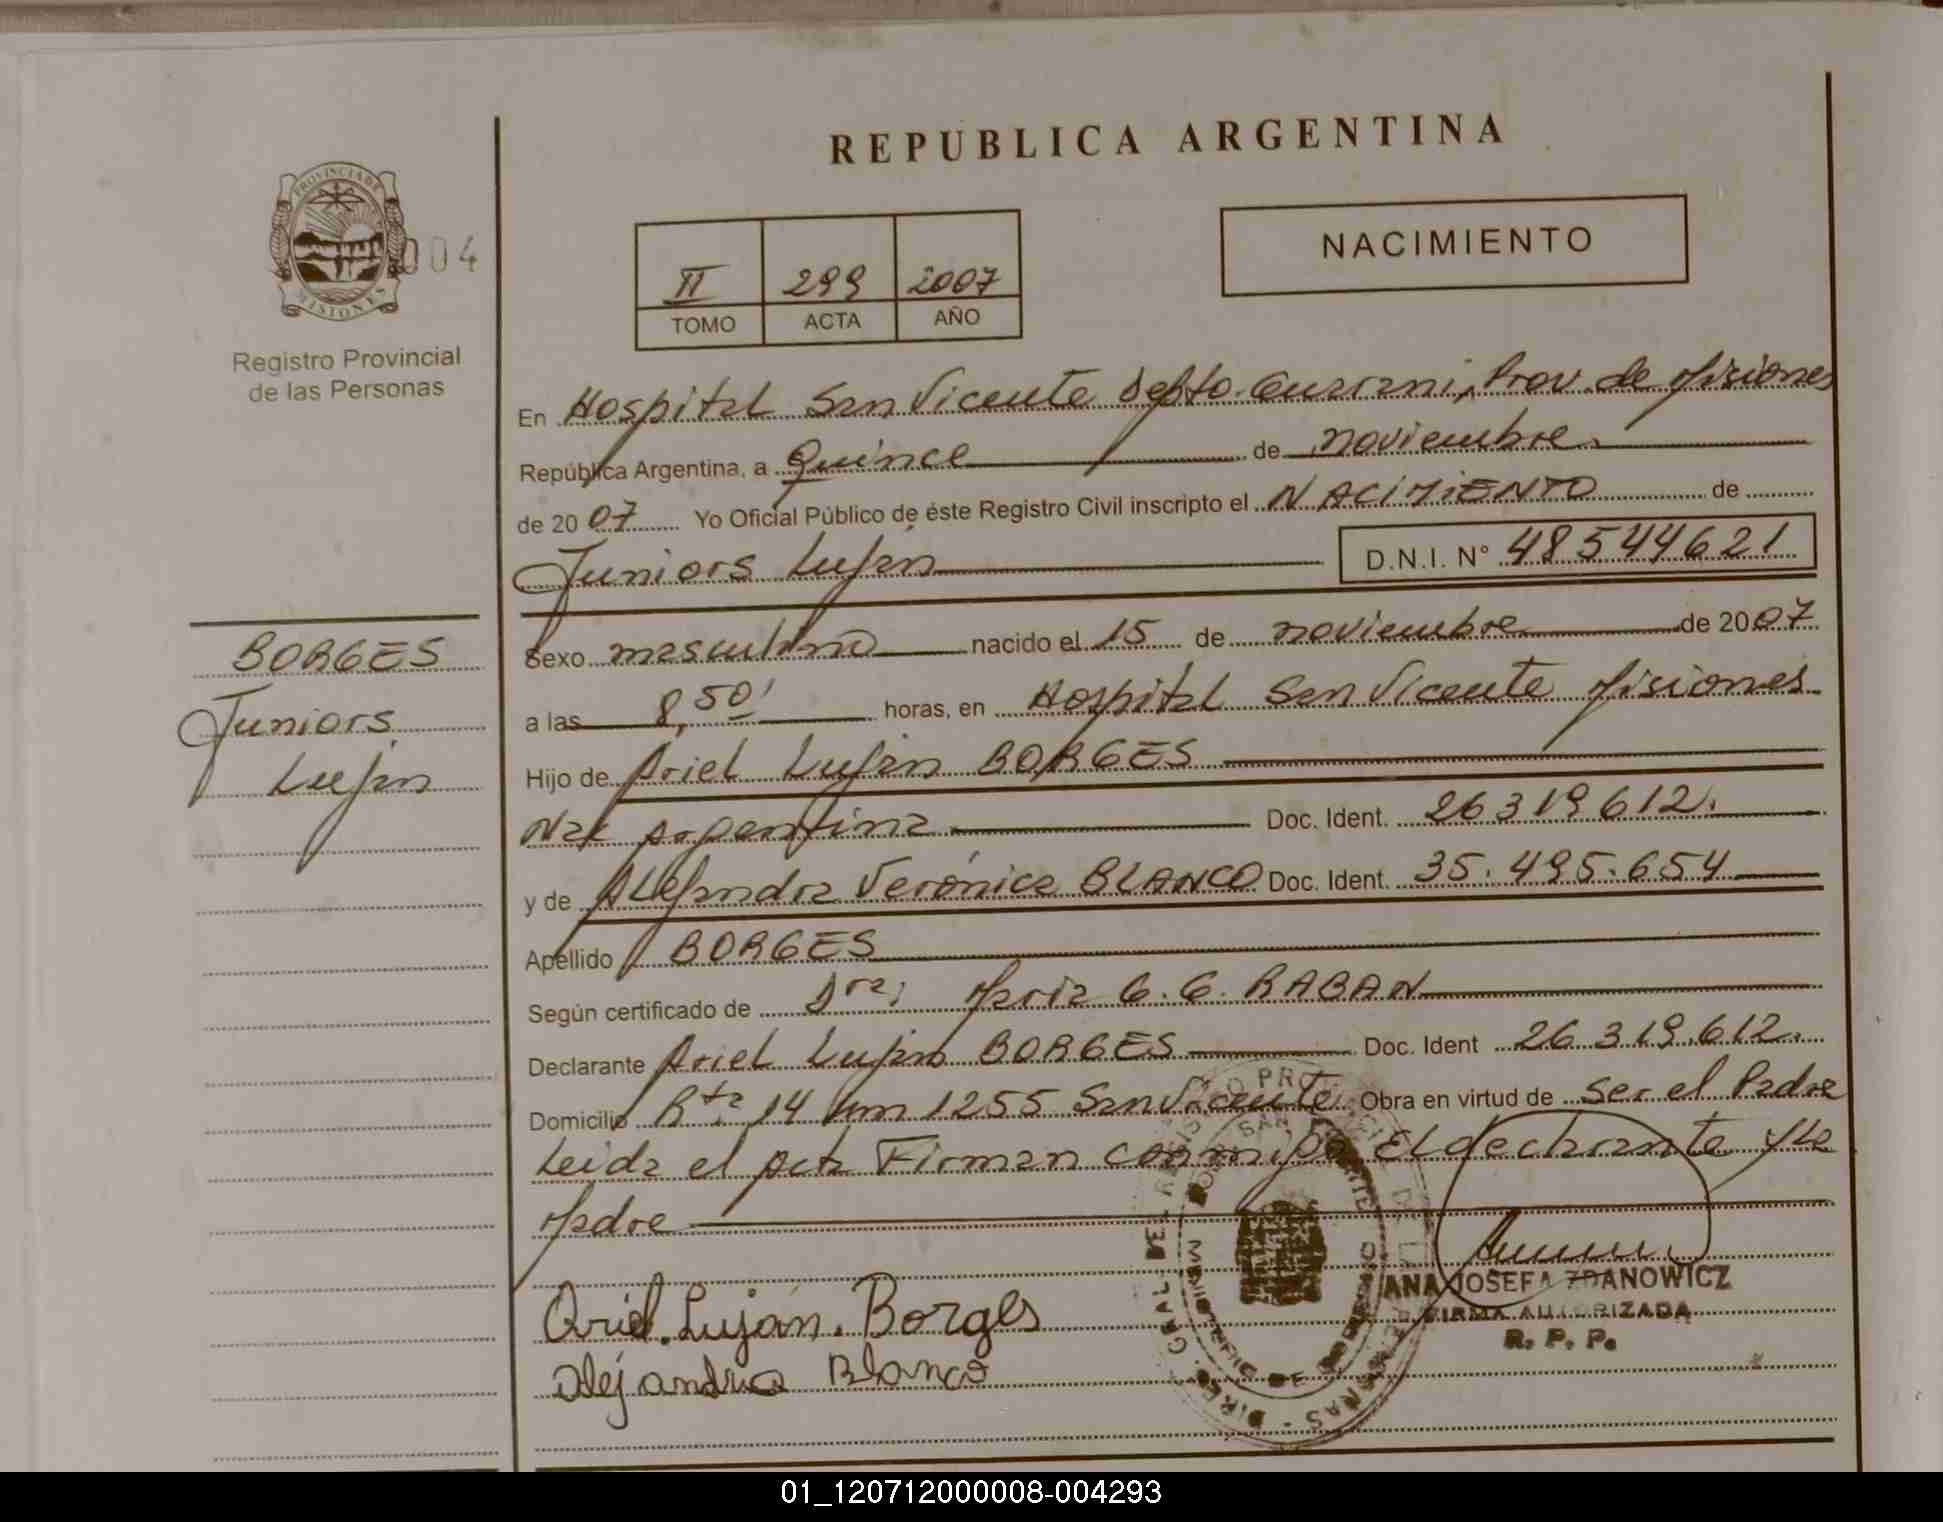 REPUBLICA ARGENTINA
PROVINCIA DE
MISIONES
004
Registro Provincial
de las Personas
II 299 2007
TOMO ACTA AÑO
NACIMIENTO
En Hospital San Vicente Depto. Guarani, Prov. de Misiones
República Argentina, a Quince de noviembre
de 2007 Yo Oficial Público de éste Registro Civil inscripto el NACIMIENTO de
Juniors Luján D.N.I. N° 48544621
BORGES
Juniors
Luján
Sexo masculino nacido el 15 de noviembre de 2007
a las 8,50' horas, en Hospital San Vicente Misiones
Hijo de Ariel Luján BORGES
Nac Argentina Doc. Ident. 26319612.
y de Alejandra Verónica BLANCO Doc. Ident. 35.495.654
Apellido BORGES
Según certificado de Dra: Maria G. G. RABAN
Declarante Ariel Luján BORGES Doc. Ident 26.319.612.
Domicilio Rta 14 km 1255 San Vicente Obra en virtud de Ser el Padre
Leida el Acta Firman conmigo El declarante y La
Madre
Ariel. Luján. Borges
Alejandra Blanco
ANA JOSEFA ZDANOWICZ
FIRMA AUTORIZADA
R. P. P.
01_120712000008-004293